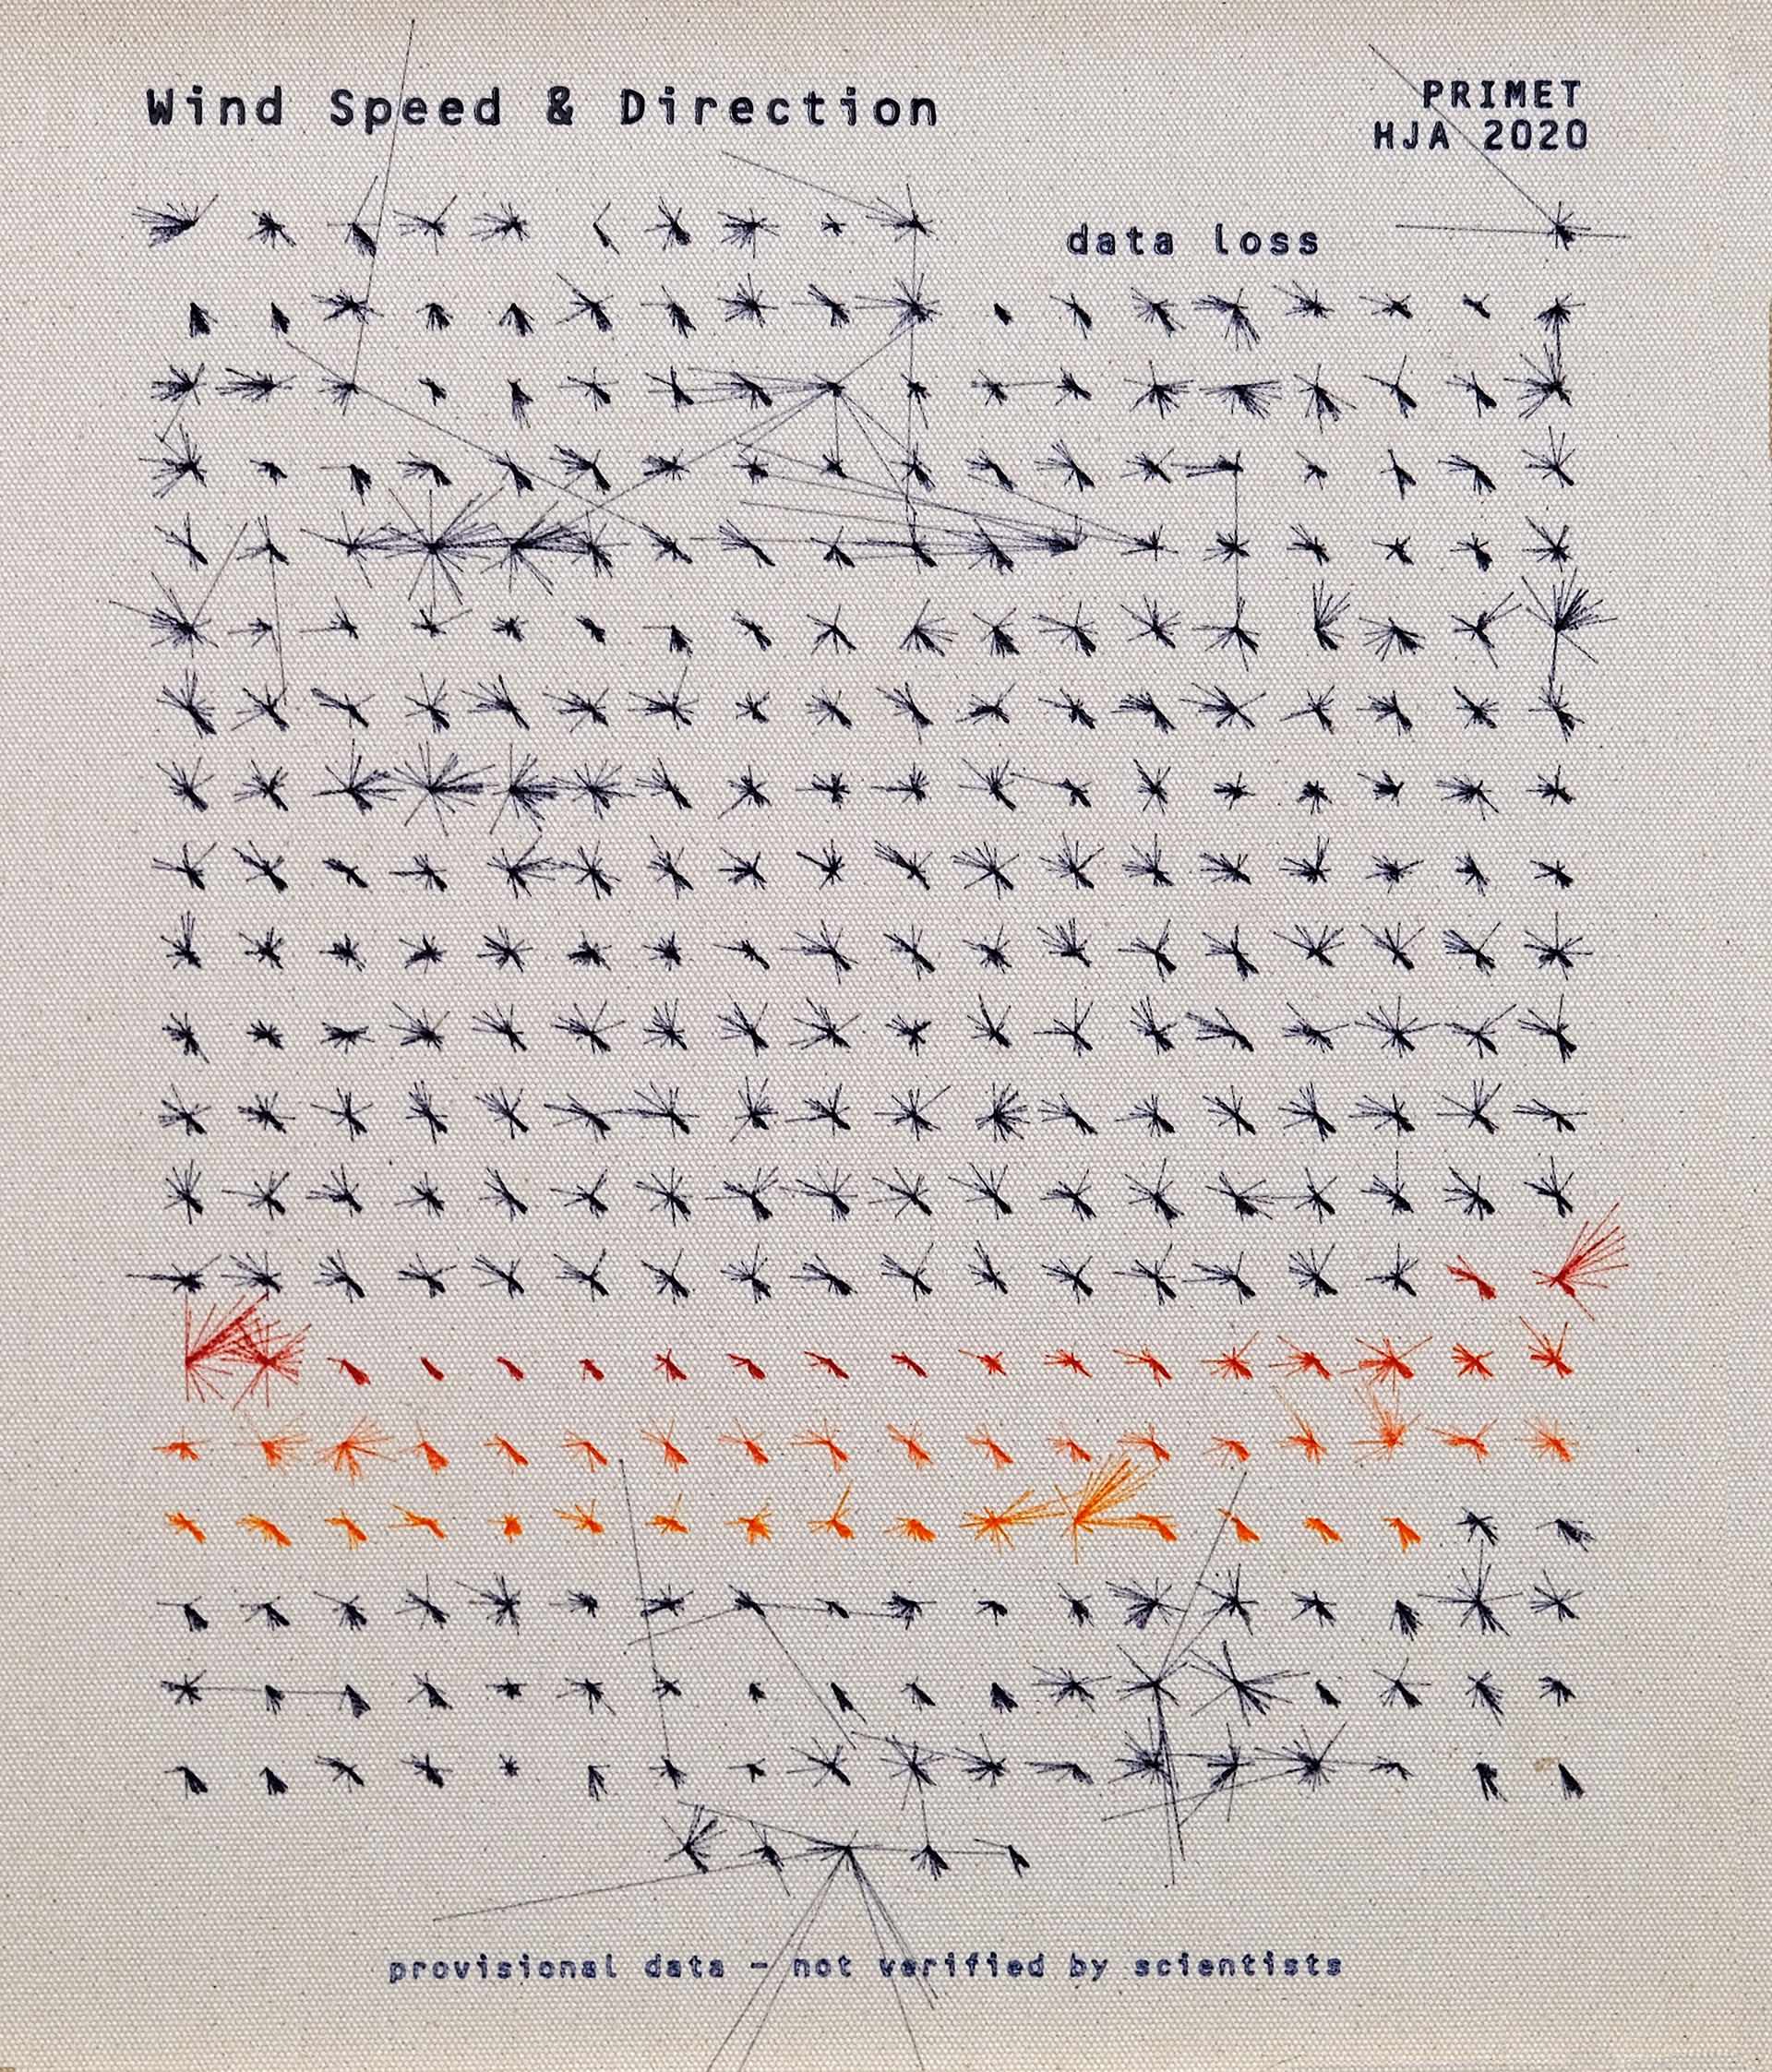 Wind Speed & Direction
PRIMET
HJA 2020
data loss
provisional data - not verified by scientists